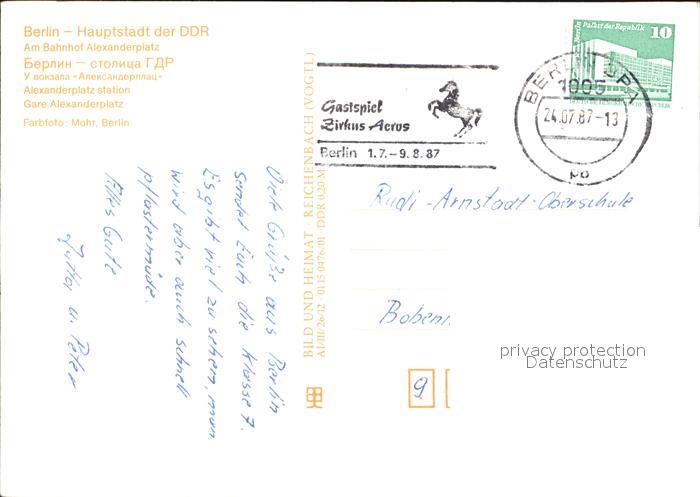 Berlin – Hauptstadt der DDR
Am Bahnhof Alexanderplatz
Берлин – столица ГДР
У вокзала «Александерплац»
Alexanderplatz station
Gare Alexanderplatz
Farbfoto: Mohr, Berlin
Viele Grüße aus Berlin
sendet Euch die Klasse 7.
Es gibt viel zu sehen, man
wird aber auch schnell
pflastermüde.
Alles Gute
Jutta u. Peter
BILD UND HEIMAT REICHENBACH (VOGTL)
A1/III/26/12 01150476/01 DDR 0,20 M
Gastspiel
Zirkus Aeros
Berlin 1.7. – 9.8.87
Palast der Republik
10
1085
24.07.87-13
Rudi-Arnstadt-Oberschule
9
privacy protection
Datenschutz